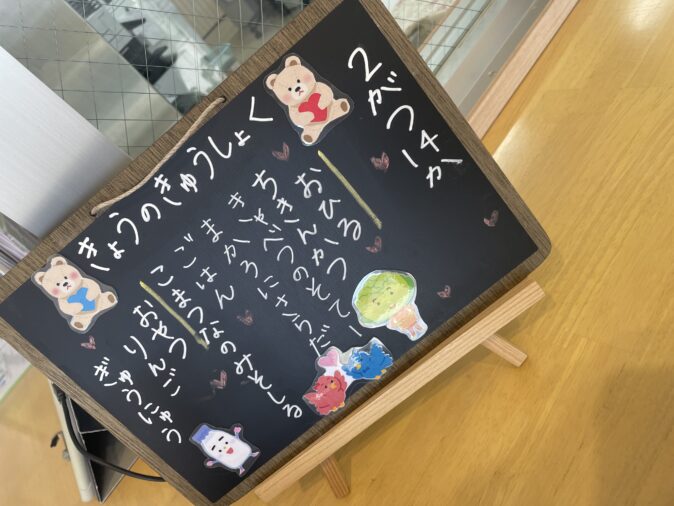 きょうのきゅうしょく
2がつ14か
おひる
ちきんかつ
きゃべつのそてー
まかろにさらだ
ごはん
こまつなのみそしる
おやつ
りんご
ぎゅうにゅう